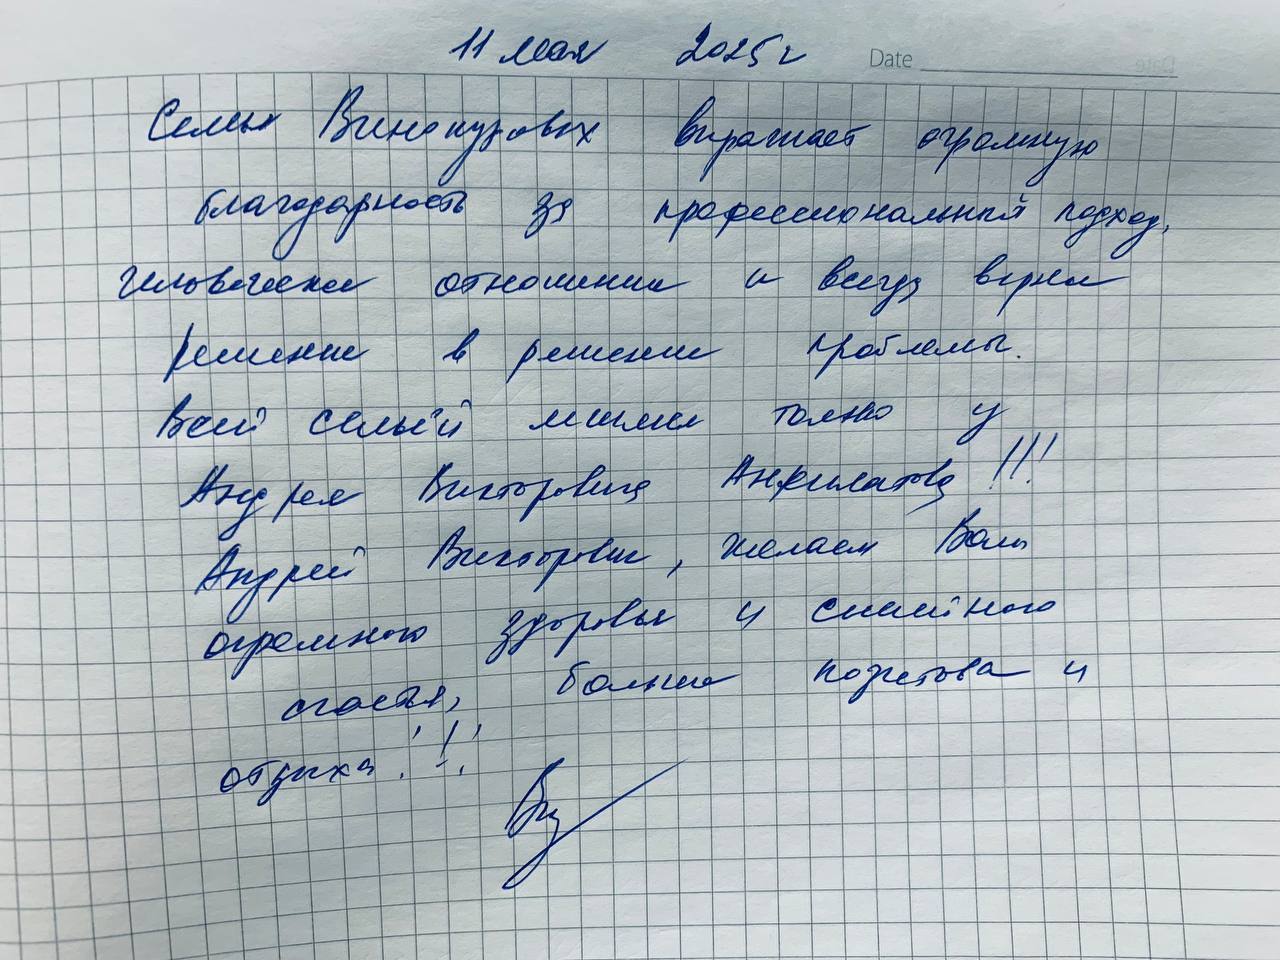 11 мая 2025 г
Date
Семья Винокуровых выражает огромную
благодарность за профессиональный подход,
человеческое отношение и всегда верное
решение в решение проблемы.
Всей семьёй лишь только у
Андрея Викторовича Анфилатова!!!
Андрей Викторович, желаем Вам
огромного здоровья и семейного
счастья, больше позитива и
отдыха!!!